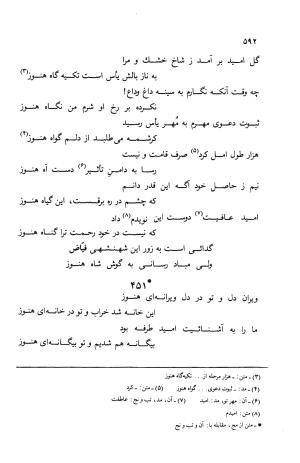 ۵۹۲
گل امید بر آمد ز شاخ خشك و مرا
به ناز بالش یأس است تکیه گاه هنـوز(۳)
چه وقت آنکه نگارم به سینه داغ وداع!
نکـرده بر رخ او شرم من نگاه هنـوز
ثبـوت دعـوی مهـرم به مُهـر یأس رسید
کرشـمـه می‌طلبـد از دلم گـواه هنـوز(۴)
هزار طول امل کرد(۵) صرف قامت و نیست
رسـا به دامـن تأثیـر(۶) دست آه هنـوز
نیم ز حاصـل خود آگه این قدر دانـم
که چشـم در ره برقـست، این گیاه هنـوز
امید عـافیـت(۷) دوست این نویدم(۸) داد
که نیست در خود رحمـت ترا گنـاه هنـوز
گدائـی است به زور این شهنـشهـی فیّاض
ولـی مبـاد رسـانـی به گوش شاه هنـوز
*۴۵۱
ویران دل و تو در دل ویـرانـه‌ای هنـوز
این خانـه شد خراب و تو در خانه‌ای هنـوز
ما را به آشنـائیـت امیـد طرفـه بود
بیگانـه هم شدیم و تو بیگانـه‌ای هنـوز
(۳)ـ متن: ـ هزار مرحله از... تکیه‌گاه هنوز
(۴)ـ مد: ـ ثبوت دعوی... گواه هنوز (۵)ـ متن: ـ کرد
(۶)ـ آن، مهر تو، مد: امید (۷)ـ آن، مد، تب و نج: عاطفت
(۸)ـ متن: امیدم
* ـ متن از مج، مقابله با: آن و تب و نج